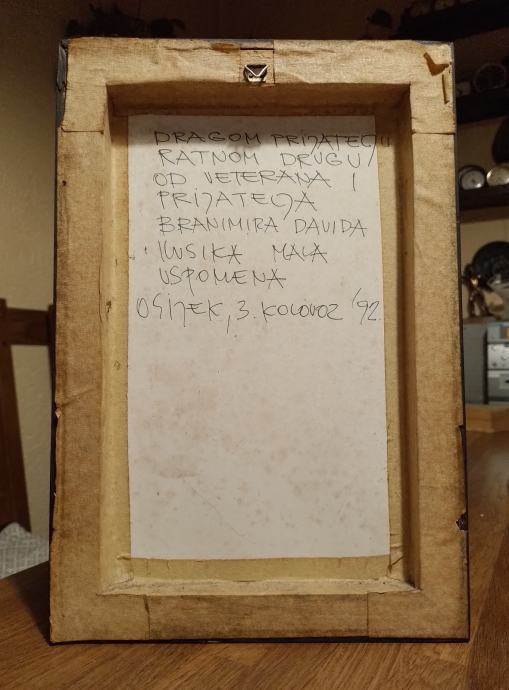 DRAGOM PRIJATELJU
RATNOM DRUGU
OD VETERANA I
PRIJATELJA
BRANIMIRA DAVIDA
KUSIKA MALA
USPOMENA
OSIJEK, 3. KOLOVOZ '92.